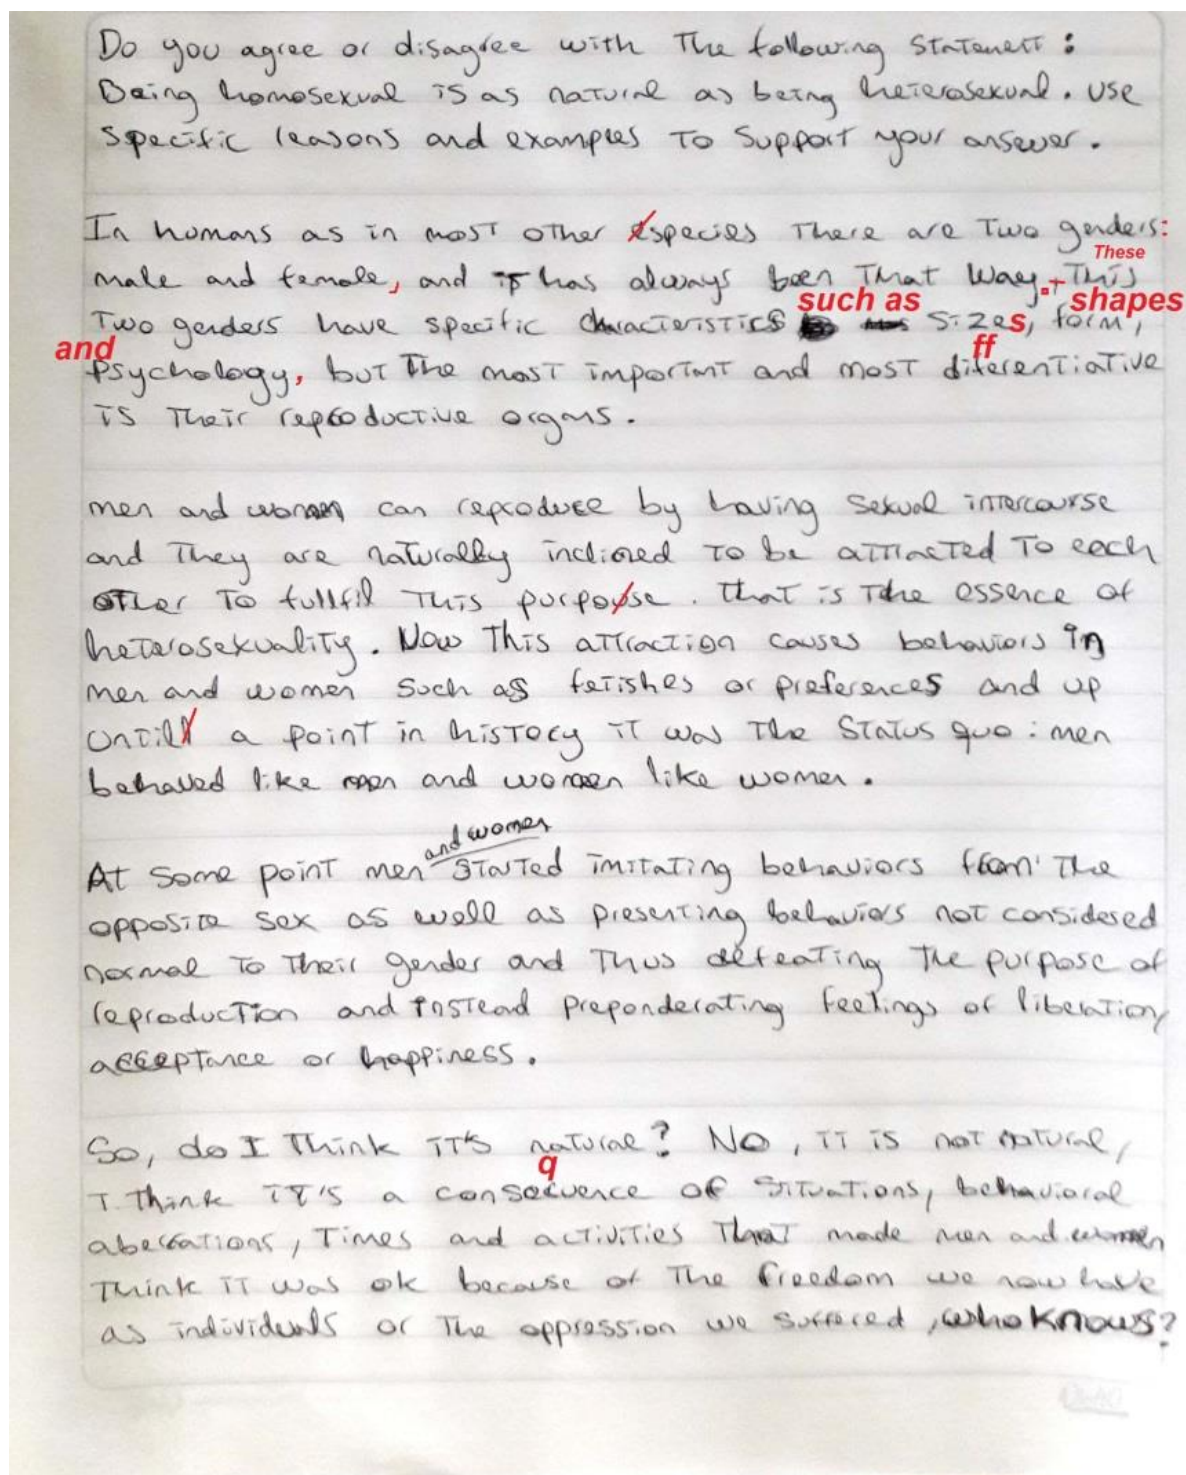 Do you agree or disagree with The following Statement :
Being homosexual is as natural as being heterosexual. Use
Specific reasons and examples To Support your answer.
In humans as in most other especies There are Two genders:
These
male and female, and it has always been That way. This
such as shapes
Two genders have specific characteristics sizes, form,
and ff
psychology, but The most important and most diferentiative
is Their reproductive organs.
men and women can reproduce by having sexual intercourse
and They are naturally inclined To be attracted To each
other To fullfil This purpouse. That is The essence of
heterosexuality. Now This attraction causes behaviors in
men and women Such as fetishes or preferences and up
untill a point in history it was The Status quo : men
behaved like men and women like women.
and women
At Some point men started imitating behaviors from The
opposite sex as well as presenting behaviors not considered
normal To Their gender and Thus defeating The purpose of
reproduction and instead preponderating feelings of liberation,
acceptance or happiness.
So, do I Think iT's natural? No, it is not natural,
q
I Think iT's a consecuence of situations, behavioral
aberrations, Times and activities That made men and women
Think it was ok because of The freedom we now have
as individuals or The oppression we suffered, who knows?